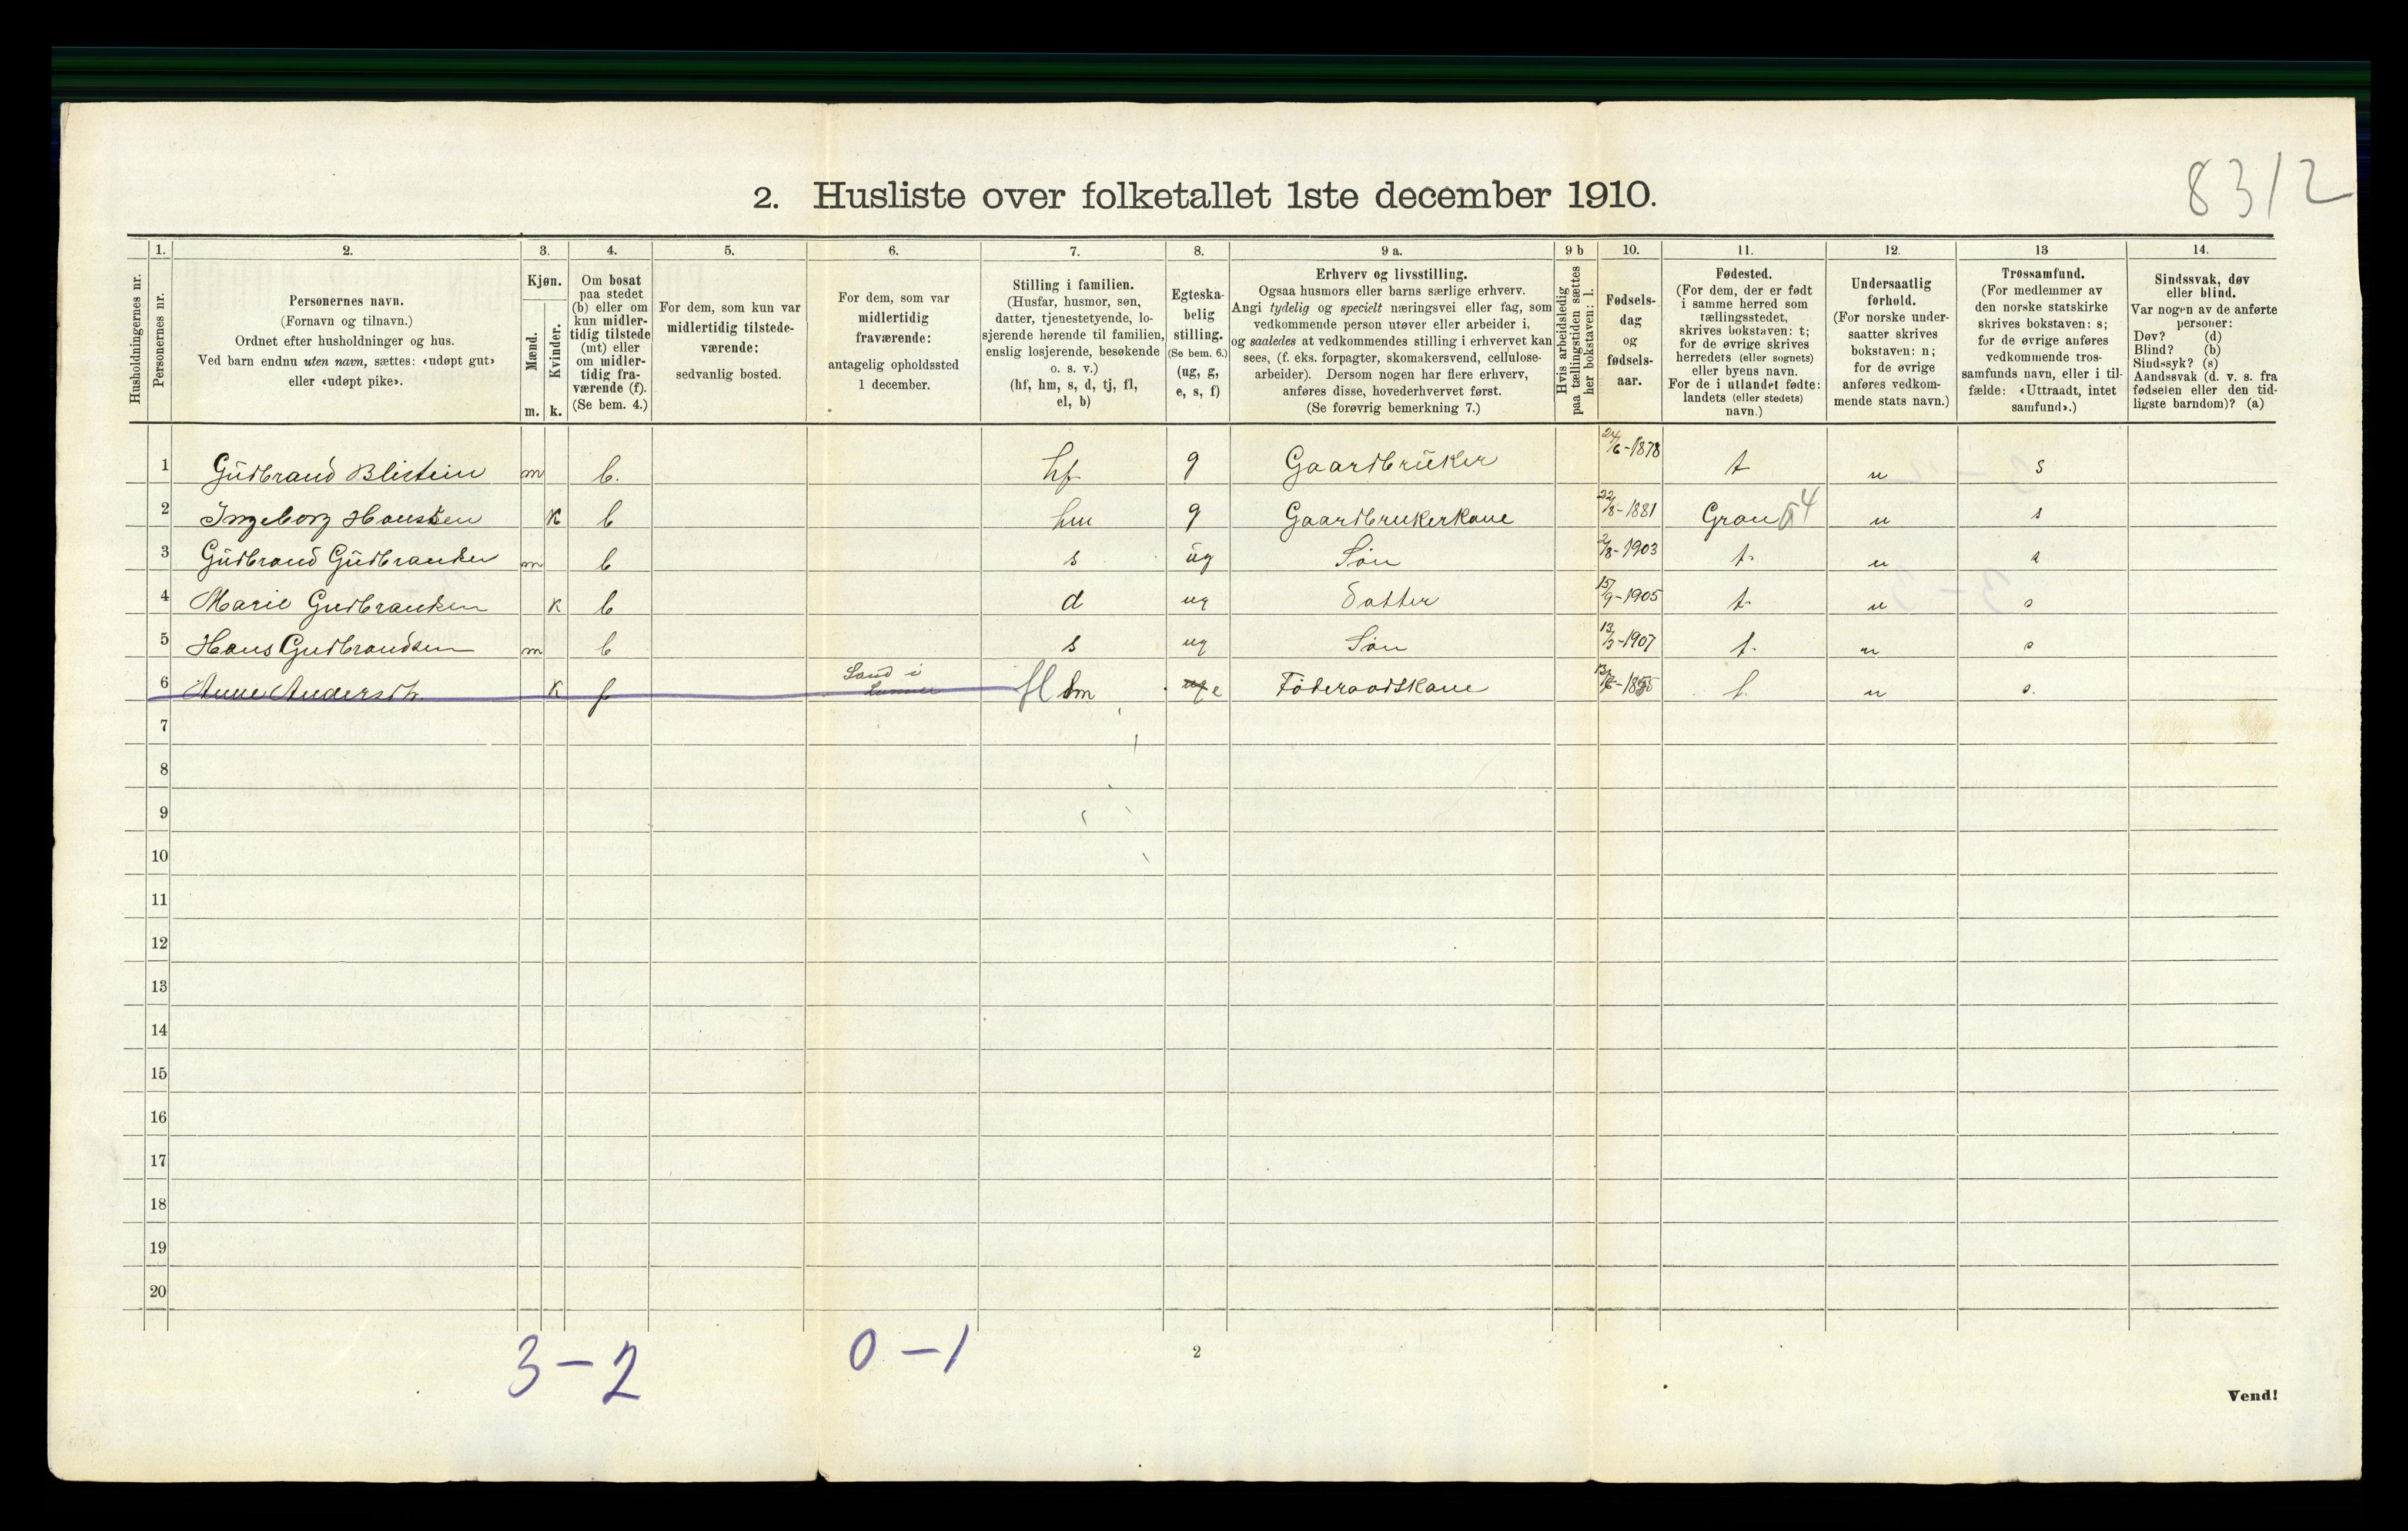 8312
2. Husliste over folketallet 1ste december 1910.
1. 2. 3. 4. 5. 6. 7. 8. 9 a. 9 b 10. 11. 12. 13 14.
Husholdningernes nr.
Personernes nr.
Personernes navn.
(Fornavn og tilnavn.)
Ordnet efter husholdninger og hus.
Ved barn endnu uten navn, sættes: «udøpt gut»
eller «udøpt pike».
Kjøn.
Mænd.
Kvinder.
m. k.
Om bosat
paa stedet
(b) eller om
kun midler-
tidig tilstede
(mt) eller
om midler-
tidig fra-
værende (f).
(Se bem. 4.)
For dem, som kun var
midlertidig tilstede-
værende:
sedvanlig bosted.
For dem, som var
midlertidig
fraværende:
antagelig opholdssted
1 december.
Stilling i familien.
(Husfar, husmor, søn,
datter, tjenestetyende, lo-
sjerende hørende til familien,
enslig losjerende, besøkende
o. s. v.)
(hf, hm, s, d, tj, fl,
el, b)
Egteska-
belig
stilling.
(Se bem. 6.)
(ug, g,
e, s, f)
Erhverv og livsstilling.
Ogsaa husmors eller barns særlige erhverv.
Angi tydelig og specielt næringsvei eller fag, som
vedkommende person utøver eller arbeider i,
og saaledes at vedkommendes stilling i erhvervet kan
sees, (f. eks. forpagter, skomakersvend, cellulose-
arbeider). Dersom nogen har flere erhverv,
anføres disse, hovederhvervet først.
(Se forøvrig bemerkning 7.)
Hvis arbeidsledig
paa tællingstiden sættes
her bokstaven: l.
Fødsels-
dag
og
fødsels-
aar.
Fødested.
(For dem, der er født
i samme herred som
tællingsstedet,
skrives bokstaven: t;
for de øvrige skrives
herredets (eller sognets)
eller byens navn.
For de i utlandet fødte:
landets (eller stedets)
navn.)
Undersaatlig
forhold.
(For norske under-
saatter skrives
bokstaven: n;
for de øvrige
anføres vedkom-
mende stats navn.)
Trossamfund.
(For medlemmer av
den norske statskirke
skrives bokstaven: s;
for de øvrige anføres
vedkommende tros-
samfunds navn, eller i til-
fælde: «Uttraadt, intet
samfund».)
Sindssvak, døv
eller blind.
Var nogen av de anførte
personer:
Døv? (d)
Blind? (b)
Sindssyk? (s)
Aandssvak (d. v. s. fra
fødselen eller den tid-
ligste barndom)? (a)
1 Gudbrand m b. hf g Gaardbruker 24/6-1878 t n s
2 Ingeborg Hansen K b hm g Gaardbrukerkone 22/8-1881 Gran n s
3 Gudbrand Gudbrandsen m b s ug Søn 2/8-1903 t n s
4 Marie Gudbrandsen K b d ug Datter 15/9-1905 t n s
5 Hans Gudbrandsen m b s ug Søn -1907 t n s
6 Anne Andersdtr. K f Sand i Lunner fl e Föderaadskone t n s.
7
8
9
10
11
12
13
14
15
16
17
18
19
20
3-2 0-1
2
Vend!